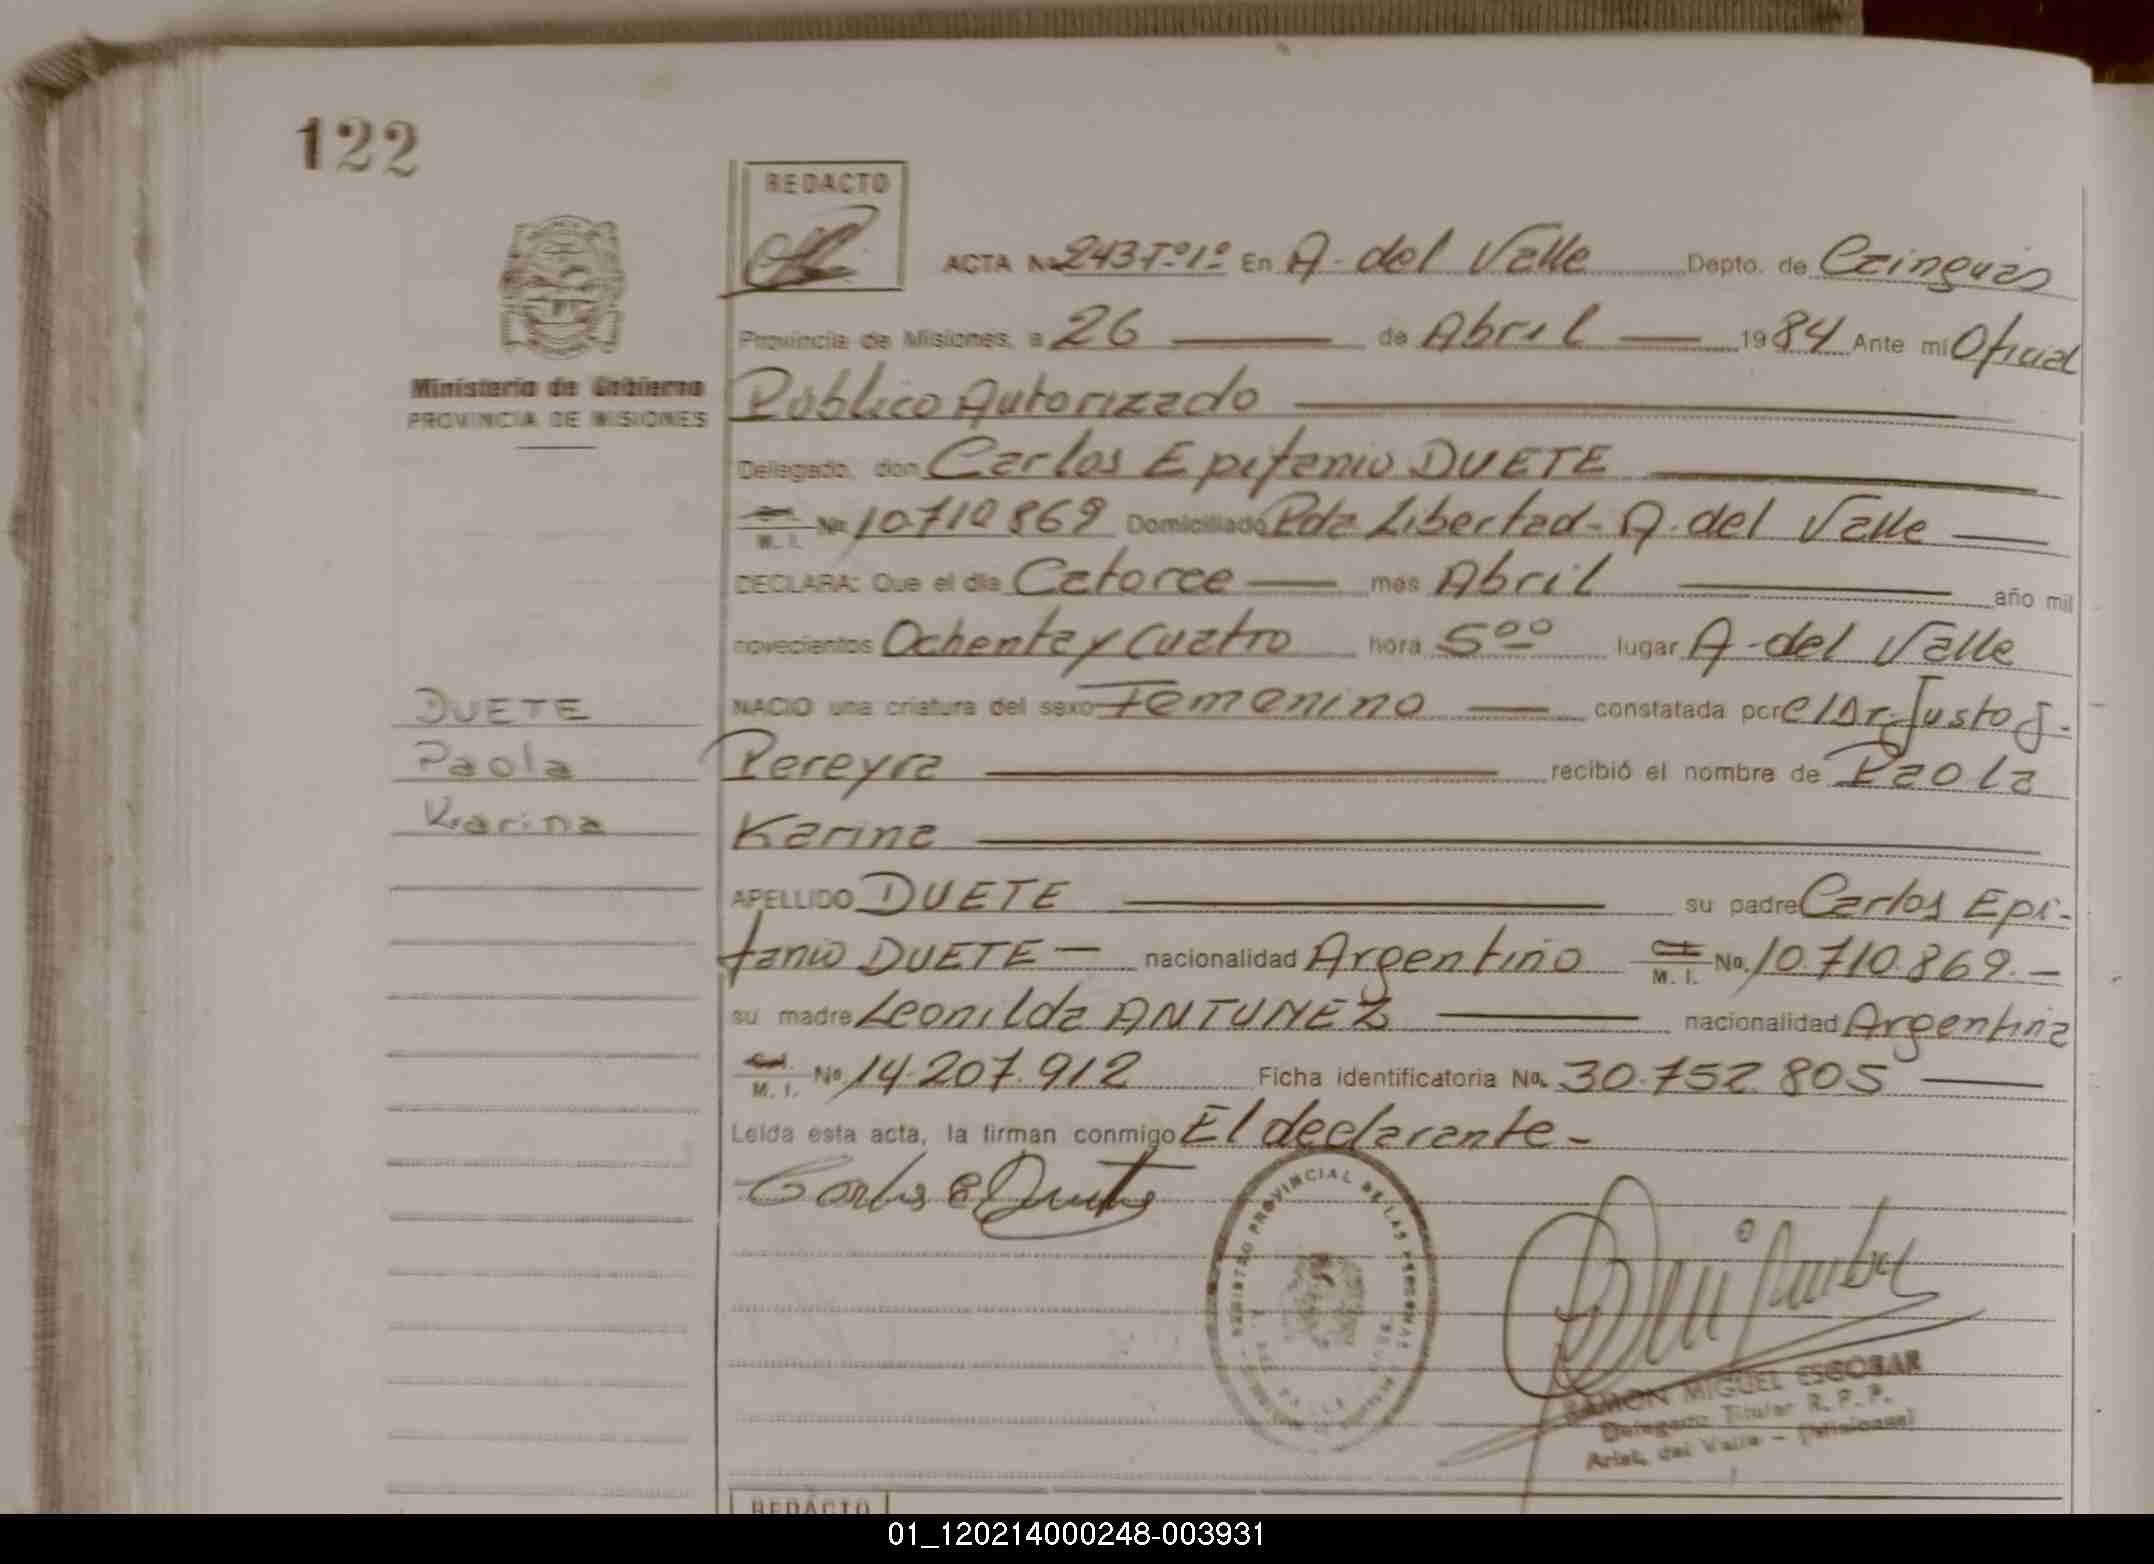 122
REDACTO
ACTA No 243 Tº1º En A. del Valle Depto. de Cainguás
Provincia de Misiones, a 26 de Abril 1984 Ante mí Oficial
Ministerio de Gobierno
PROVINCIA DE MISIONES
Público Autorizado
Delegado, don Carlos Epifanio DUETE
M. I. No 10.710.869 Domiciliado Pda Libertad - A. del Valle
DECLARA: Que el día Catorce mes Abril año mil
novecientos Ochenta y Cuatro hora 5ºº lugar A. del Valle
DUETE
Paola
Karina
NACIO una criatura del sexo Femenino constatada por el Dr. Justo J.
Pereyra recibió el nombre de Paola
Karina
APELLIDO DUETE su padre Carlos Epi-
fanio DUETE nacionalidad Argentino M. I. No. 10.710.869.
su madre Leonilda ANTUNEZ nacionalidad Argentina
M. I. No 14.207.912 Ficha identificatoria No. 30.752.805
Leída esta acta, la firman conmigo El declarante.
Carlos E Duete
REGISTRO PROVINCIAL DE LAS PERSONAS
RAMON MIGUEL ESCOBAR
Delegado Titular R. P. P.
Arist. del Valle - (Misiones)
REDACTO
01_120214000248-003931